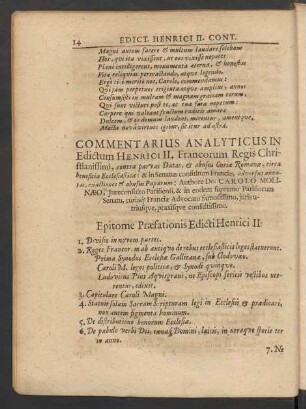 14 EDICT. HENRICI II. CONT.
Magni autem facere & multum laudare solebam
Hos, qui ita vixissent, ut eos vixisse nepotes
Planè intelligerent, monumenta aeterna, & honesta
Vitae reliquias perscrutando, atque legendo.
Ergò tibi meritò nos, Carole, commendamus:
Qui jam perpetuos triginta atque amplius annos
Consumsisti in multam & magnam gratiam eorum
Qui sunt victuri post te, ac tua fata nepotum:
Carpere qui valeant fructum radicis amarae
Dulcem, & eadem laudent, mirentur, amentque,
Macte nova virtute igitur, sic itur ad astra.
COMMENTARIUS ANALYTICUS IN
Edictum HENRICI II. Francorum Regis Chri-
stianissimi, contra parvas Datas, & abusus Curiae Romanae, circa
beneficia Ecclesiastica: & in Senatus consultum Francic. adversus anna-
tas, exactiones & abusus Paparum: Authore Dn. CAROLO MOLI-
NAEO, Jureconsulto Parisiensi, & in eodem supremo Parisiorum
Senatu, curiaeque Franciae Advocato famosissimo, juris u-
triusque, praxisque consultissimo.
Epitome Praefationis Edicti Henrici II.
1. Divisio in tres partes.
2. Reges Francor. m. ab antiquo de rebus ecclesiasticis leges statuerunt.
Prima Synodus Ecclesiae Gallicanae, sub Clodoveo.
Caroli M. leges politicae, & Synodi quinque.
Ludovicus Pius Aquisgrani, ut Episcopi sericis vestibus ute-
rentur, edixit.
3. Capitulare Caroli Magni.
4. Statutu solam Sacram Scripturam legi in Ecclesiis & praedicari,
non autem figmenta hominum.
5. De distributione bonorum Ecclesiae.
6. De pabulo verbi Dei, coenaque Domini, laicis, in utraque specie ter
in anno.
7. Ne